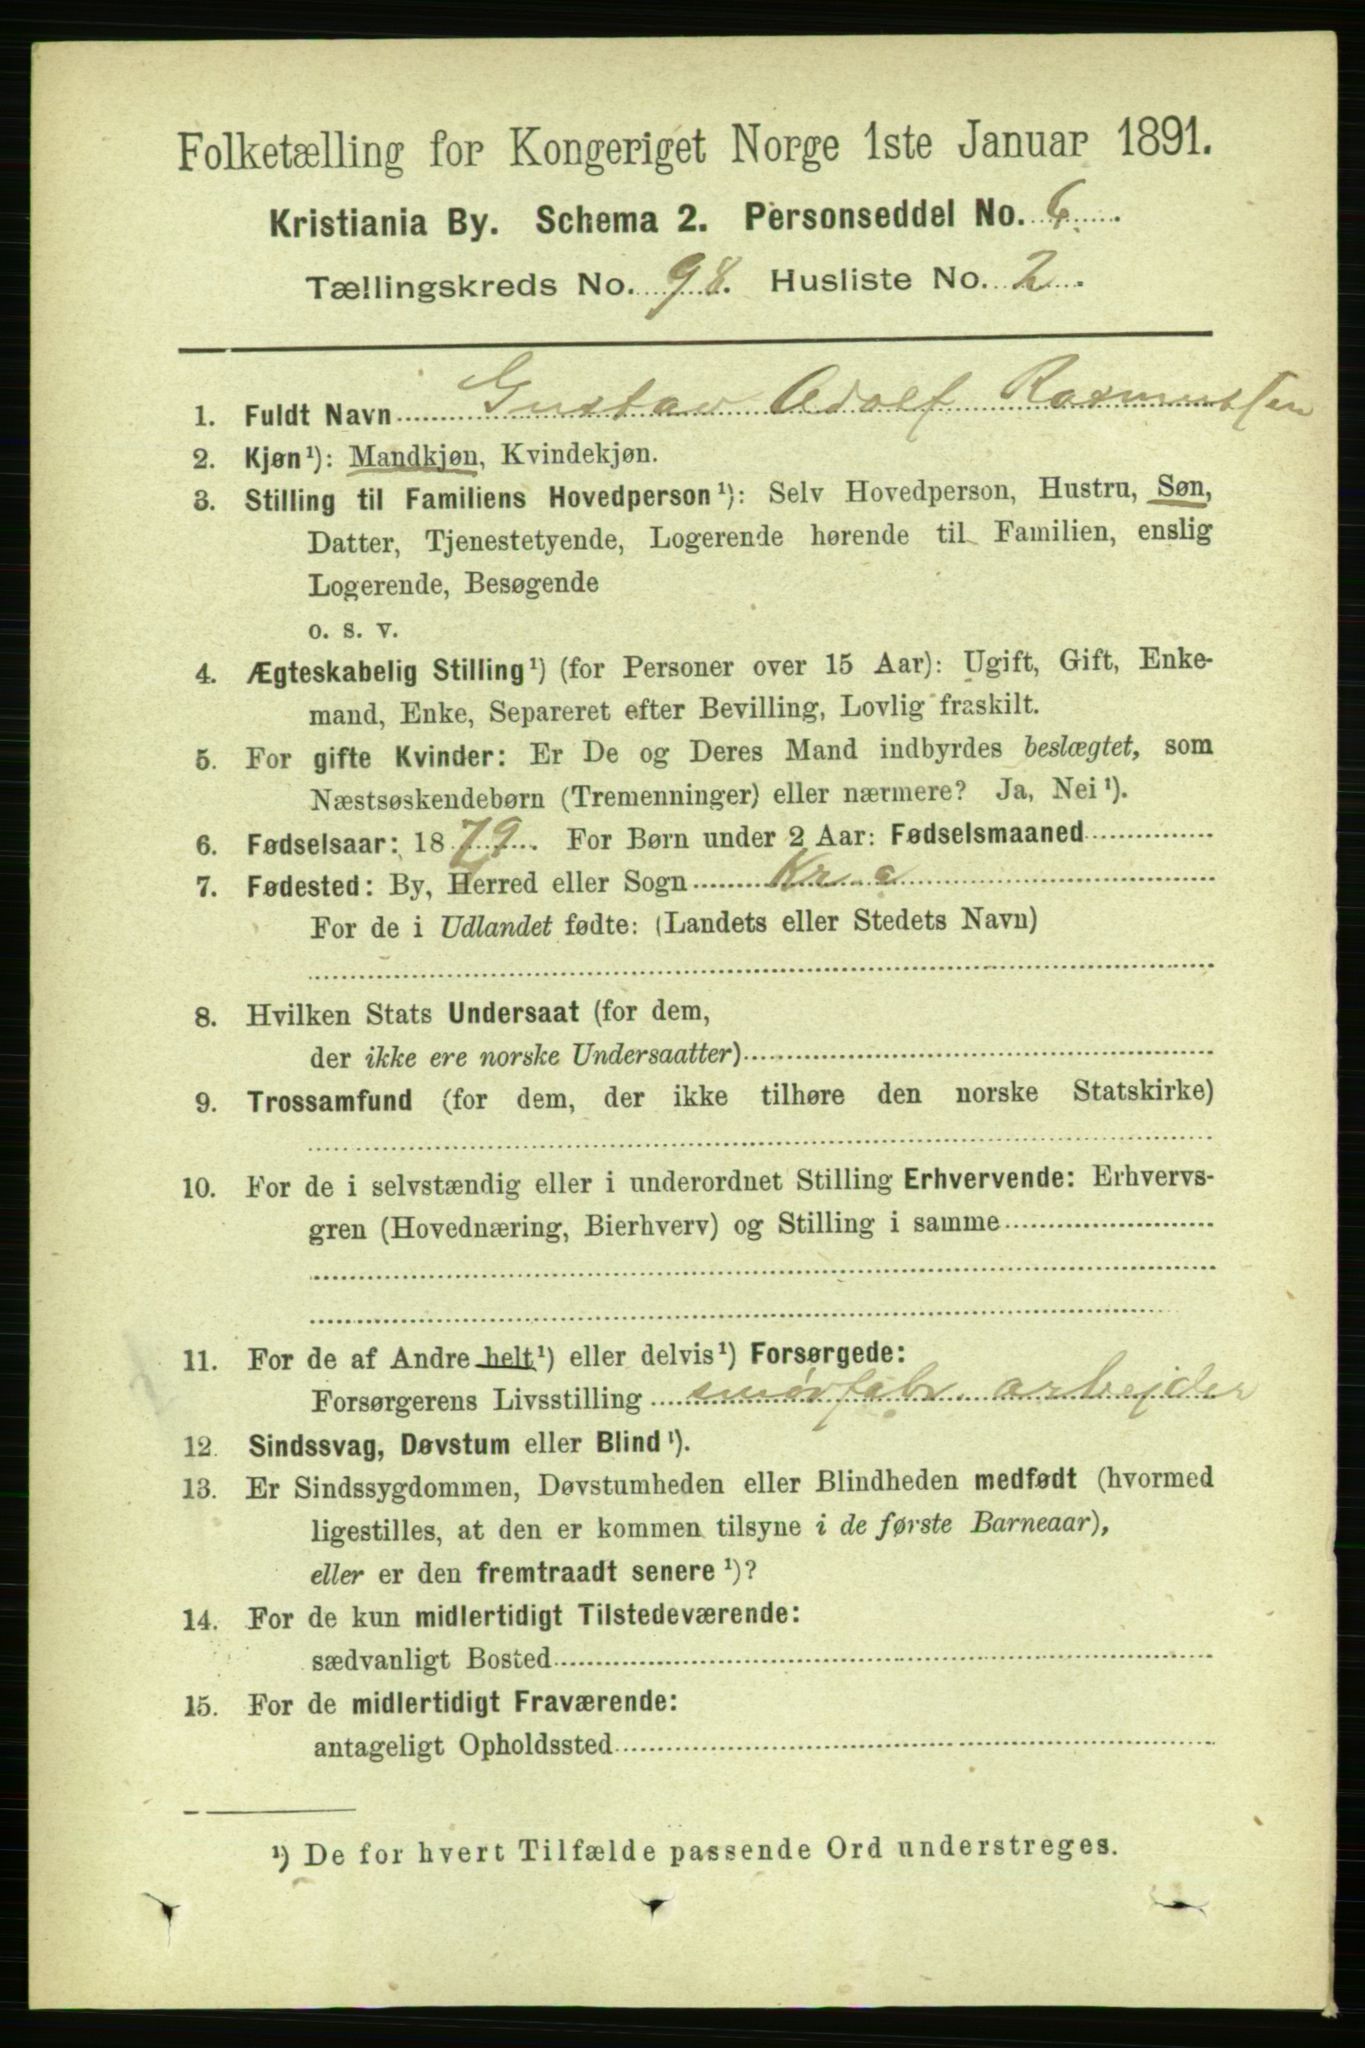 Folketælling for Kongeriget Norge 1ste Januar 1891.
Kristiania By. Schema 2. Personseddel No. 6.
Tællingskreds No. 98. Husliste No. 2.
1. Fuldt Navn Gustav Adolf Rasmussen
2. Kjøn¹): Mandkjøn, Kvindekjøn.
3. Stilling til Familiens Hovedperson¹): Selv Hovedperson, Hustru, Søn,
Datter, Tjenestetyende, Logerende hørende til Familien, enslig
Logerende, Besøgende
o. s. v.
4. Ægteskabelig Stilling¹) (for Personer over 15 Aar): Ugift, Gift, Enke-
mand, Enke, Separeret efter Bevilling, Lovlig fraskilt.
5. For gifte Kvinder: Er De og Deres Mand indbyrdes beslægtet, som
Næstsøskendebørn (Tremenninger) eller nærmere? Ja, Nei¹).
6. Fødselsaar: 1879. For Børn under 2 Aar: Fødselsmaaned
7. Fødested: By, Herred eller Sogn Kr a
For de i Udlandet fødte: (Landets eller Stedets Navn)
8. Hvilken Stats Undersaat (for dem,
der ikke ere norske Undersaatter)
9. Trossamfund (for dem, der ikke tilhøre den norske Statskirke)
10. For de i selvstændig eller i underordnet Stilling Erhvervende: Erhvervs-
gren (Hovednæring, Bierhverv) og Stilling i samme
11. For de af Andre helt¹) eller delvis¹) Forsørgede:
Forsørgerens Livsstilling smørfabr. arbejder
12. Sindssvag, Døvstum eller Blind¹).
13. Er Sindssygdommen, Døvstumheden eller Blindheden medfødt (hvormed
ligestilles, at den er kommen tilsyne i de første Barneaar),
eller er den fremtraadt senere¹)?
14. For de kun midlertidigt Tilstedeværende:
sædvanligt Bosted
15. For de midlertidigt Fraværende:
antageligt Opholdssted
¹) De for hvert Tilfælde passende Ord understreges.